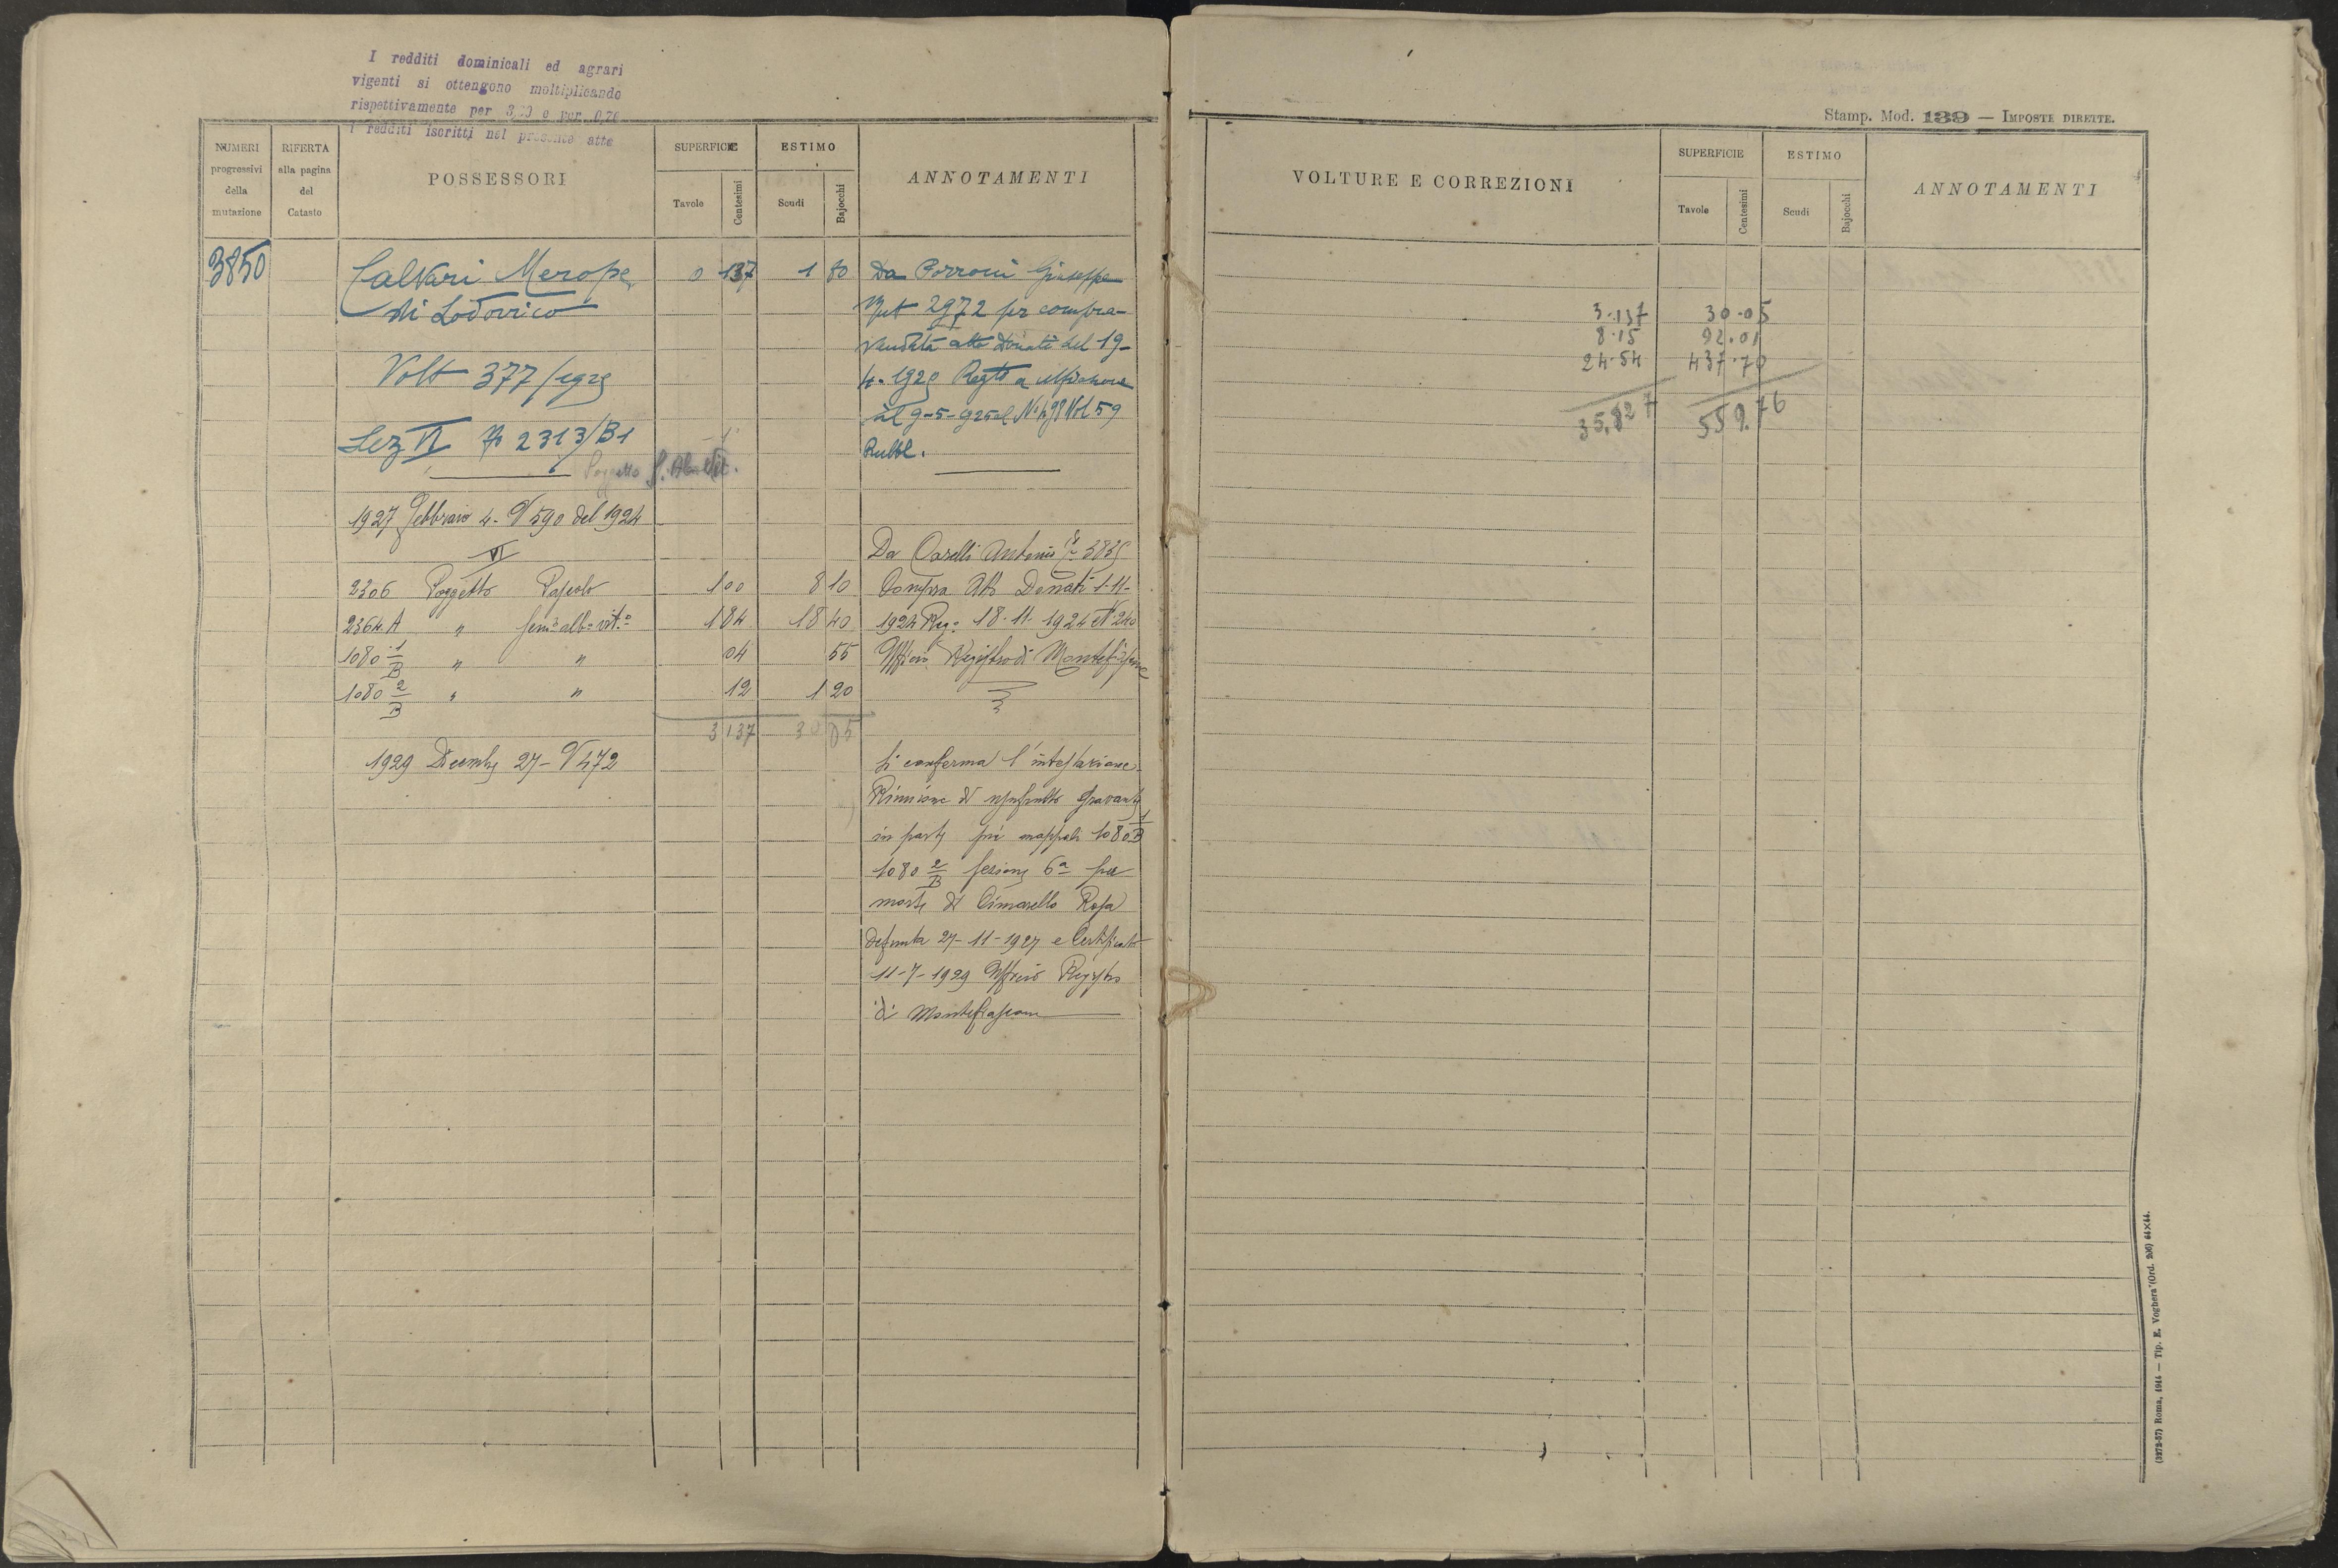 I redditi dominicali ed agrari
vigenti si ottengono moltiplicando
rispettivamente per e per 0,70
i redditi iscritti nel presente atte
NUMERI progressivi della mutazione
RIFERTA alla pagina del Catasto
POSSESSORI
SUPERFICIE
Tavole
Centesimi
ESTIMO
Scudi
Bajocchi
ANNOTAMENTI
3850 Calvari Merope 0 137 1 80 Da Porroni Giuseppe
di Lodovico
Art 2972 per compra-
vendita atto Donati del 19-
Volt 377/
4-1925 Regto a
il 9-5-925 al Nº 498 Vol 59
Sez VI No 2313/B1
Pubbl.
Poggetto S. Alb Vit.
1927 Febbraio 4. V 590 del 1924
VI
Da Caselli Antonio
2306 Poggetto Pascolo 1 00 8 10 Compra Atto Donati 1-11-
2364 A " Semo albo vito 1 84 18 40 1924 Reg: 18-11-1924 N 240
1080 1/B " " 04 55 Ufficio Registro di Montefiascone
1080 2/B " " 12 1 20
3 137 30 05
1929 Dicembre 27- V 472
Si conferma l'intestazione.
Riunione di usufrutto gravante
in parte sui mappali 1080 1/B
1080 2/B sezione 6a per
morte di Cimarello Rosa
defunta 27-11-1927 e Certificato
11-7-1929 Ufficio Registro
di Montefiascone
Stamp. Mod. 139 — IMPOSTE DIRETTE.
VOLTURE E CORREZIONI
SUPERFICIE
Tavole
Centesimi
ESTIMO
Scudi
Bajocchi
ANNOTAMENTI
3.137 30.05
8.15 92.01
24.54 437.70
35.827 559.76
(3272-57) Roma, 1914 — Tip. E. Voghera (Ord. 206) 64×44.